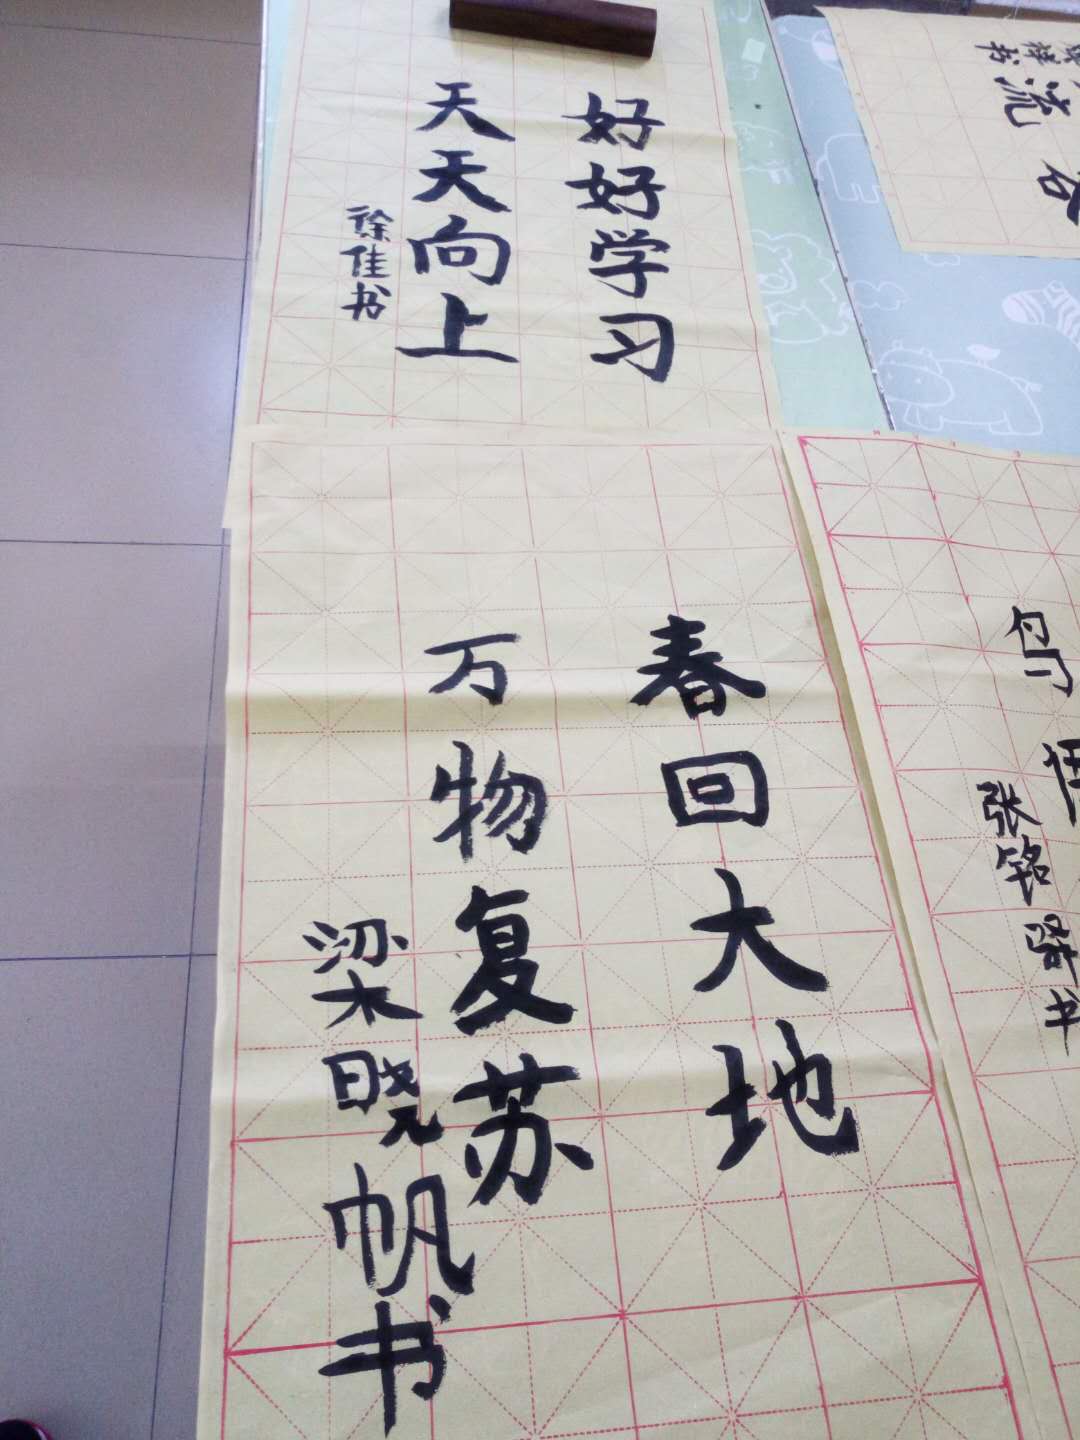 好好学习
天天向上
徐佳书
春回大地
万物复苏
梁晓帆书
流
书
张铭
书